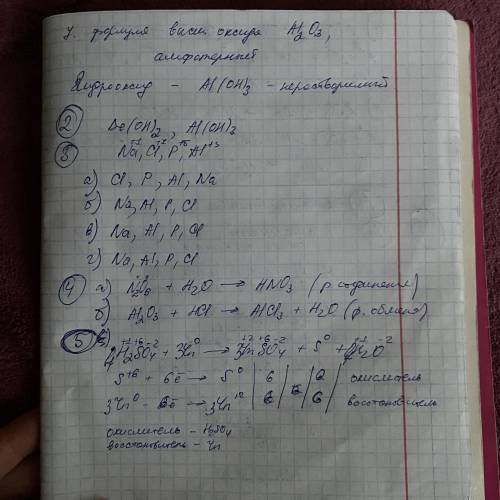 7. формула высш. оксида Al₂O₃,
амфотерный
Гидрооксид – Al(OH)₃ – нерастворимый
2 Be(OH)₂, Al(OH)₂
3 Na⁺¹, Cl⁺⁷, P⁺⁵, Al⁺³
а) Cl, P, Al, Na
б) Na, Al, P, Cl
в) Na, Al, P, Cl
г) Na, Al, P, Cl
4 а) + H₂O → HNO₃ (р. соединения)
б) Al₂O₃ + HCl → AlCl₃ + H₂O (р. обмена)
5 4H₂⁺¹S⁺⁶O₄⁻² + 3Zn⁰ → 3Zn⁺²S⁺⁶O₄⁻² + S⁰ + 4H₂⁺¹O⁻²
S⁺⁶ + 6ē → S⁰ | 6 | | | окислитель
3Zn⁰ – 6ē → 3Zn⁺² | 6 | | 6 | восстановитель
окислитель – H₂SO₄
восстановитель – Zn